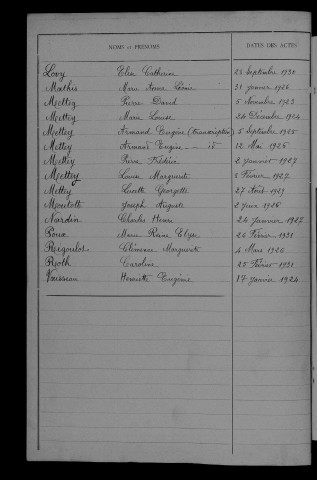 NOMS ET PRÉNOMS DATES DES ACTES
Lovy Elisa Catherine 28 Septembre 1930
Mathis Marie Anne 31 Janvier 1926
Mettey Pierre David 5 Novembre 1923
Mettey Marie Louise 24 Décembre 1924
Mettey Armand Eugène (transcription) 5 Septembre 1925
Mettey Armand Eugène - id 12 Mai 1926
Mettey Pierre Frédéric 2 Janvier 1927
Mettey Louise Marguerite Février 1927
Mettey Lucette Georgette 27 Août 1929
Joseph Auguste 2 Juin 1926
Nardin Charles Henri 24 Janvier 1927
Roux Marie Rose 26 Février 1931
Clémence Marguerite 4 Mars 1926
Roth Caroline 25 Février 1931
Henriette Eugénie 17 Janvier 1924